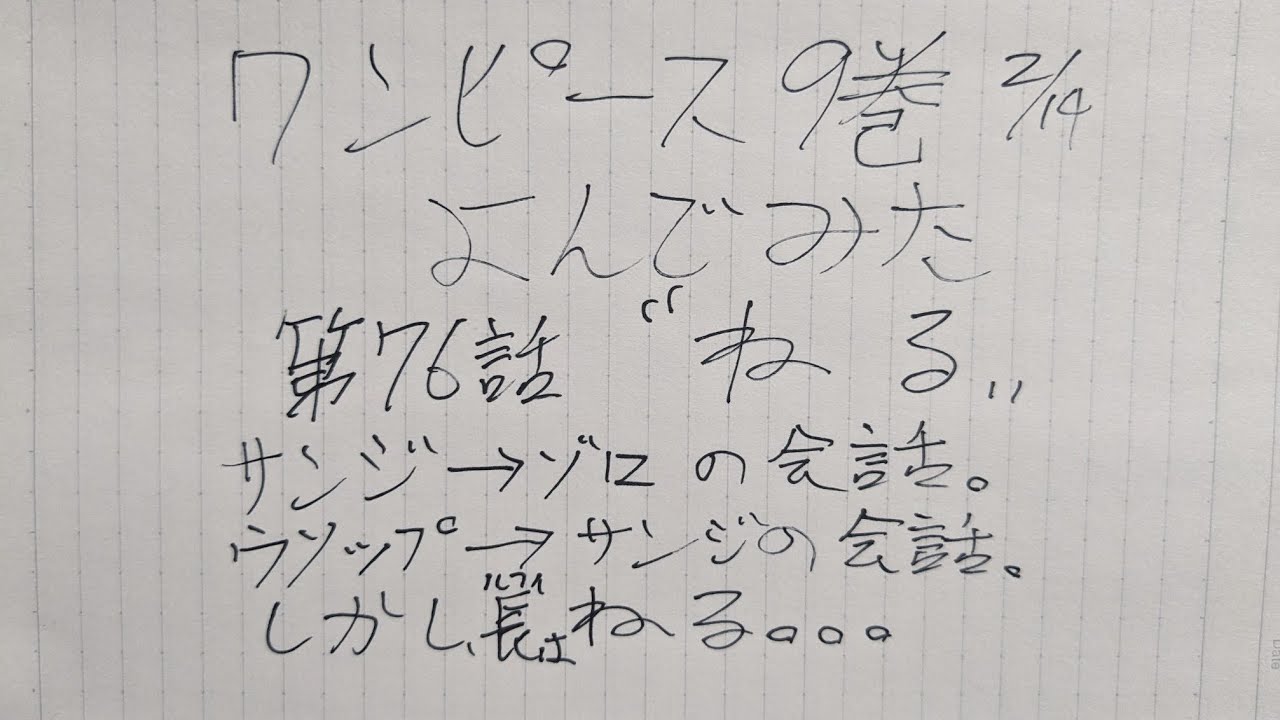 ワンピース 9巻 2/14
よんでみた
第76話 “ねる„
サンジ→ゾロ の会話。
ウソップ→サンジの会話。
ルフィ
しかし、長はねる。。。
Date